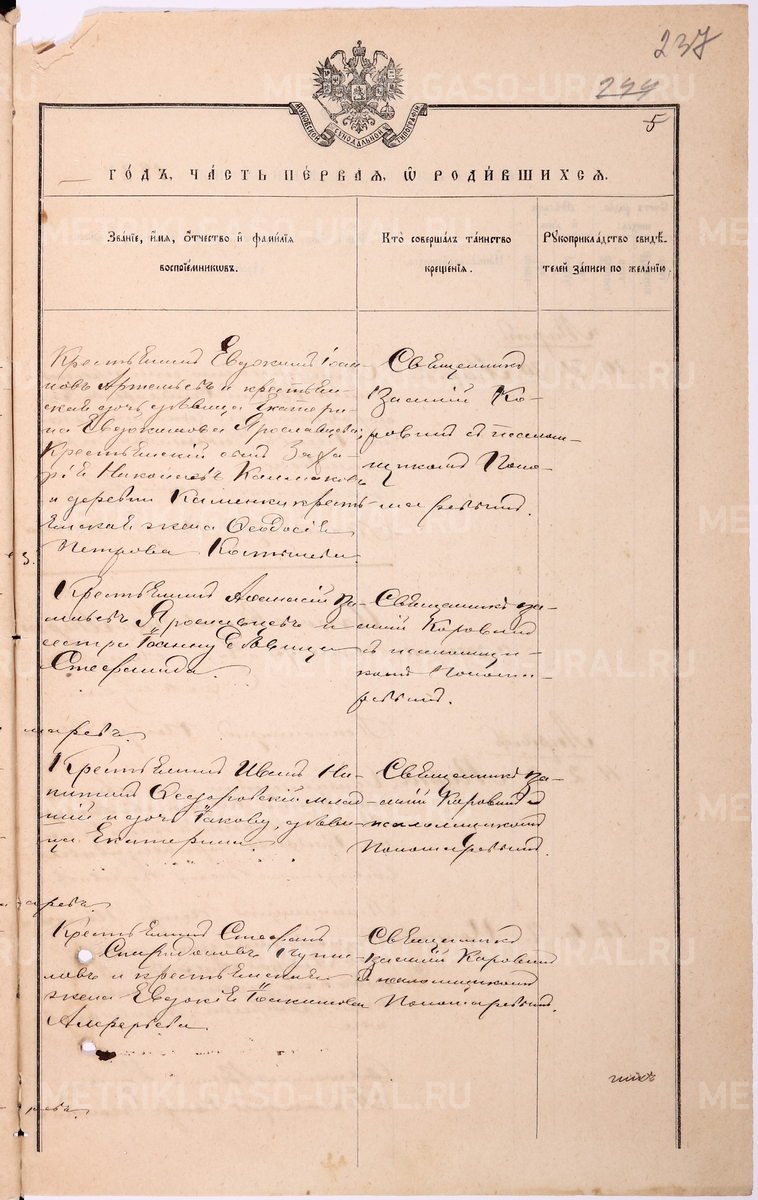 237
244
5
МОСКОВСКОЙ СѴНОДАЛЬНОЙ ТИПОГРАФІИ
ГО́ДЪ, ЧА́СТЬ ПЕ́РВАЯ, Ѡ҆ РОДИ́ВШИХСЯ.
Зва́нїе, и҆́мя, ѻ҆́тчество и҆ фами́лїя
воспрїе́мниковъ.
Кто̀ соверша́лъ та́инство
креще́нїя.
Рꙋкоприкла́дство свидѣ́-
телей за́писи по жела́нїю.
Крестьянинъ Евдокимъ Іоан-
новъ Артемьевъ и крестьян-
ская дочь дѣвица Екатери-
на Евдокимова Ярославцева,
Крестьянскій сынъ Заха-
рія Николаевъ Колмаковъ
и деревни Каменки кресть-
янская жена Ѳеодосія
Петрова Костылева.
Священникъ
Василій Ко-
ровинъ съ псалом-
щикомъ Поно-
маревымъ.
Крестьянинъ Аѳанасій Ва-
сильевъ Ярославцевъ и
сестра Іоанну дѣвица
Стефанида.
Священникъ Ва-
силій Коровинъ
съ псаломщи-
комъ Понома-
ревымъ.
маревъ.
Крестьянинъ Иванъ Ни-
китинъ Ѳедоровскій млад-
шій и дочь Іакову, дѣви-
ца Екатерина.
Священникъ Ва-
силій Коровинъ съ
псаломщикомъ
Пономаревымъ.
маревъ.
Крестьянинъ Стефанъ
Спиридоновъ
и крестьянская
жена Евдокія Іоакимова
Алферьева.
Священникъ
Василій Коровинъ
съ псаломщикомъ
Пономаревымъ.
никъ
ревъ.
METRIKI.GASO-URAL.RU